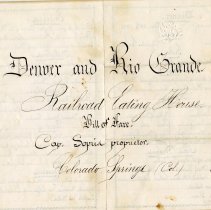 Denver and Rio Grande
Railroad Eating House.
Bill of Fare.
Cap. Sopris proprietor.
Colorado Springs (Col.)